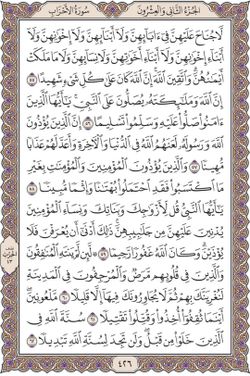 الجزء الثاني والعشرون سورة الأحزاب
لَّا جُنَاحَ عَلَيْهِنَّ فِي ءَابَآئِهِنَّ وَلَآ أَبْنَآئِهِنَّ وَلَآ إِخْوَٰنِهِنَّ وَلَآ
أَبْنَآءِ إِخْوَٰنِهِنَّ وَلَآ أَبْنَآءِ أَخَوَٰتِهِنَّ وَلَا نِسَآئِهِنَّ وَلَا مَا مَلَكَتْ
أَيْمَٰنُهُنَّ وَٱتَّقِينَ ٱللَّهَ إِنَّ ٱللَّهَ كَانَ عَلَىٰ كُلِّ شَيْءٍ شَهِيدًا ٥٥
إِنَّ ٱللَّهَ وَمَلَٰٓئِكَتَهُۥ يُصَلُّونَ عَلَى ٱلنَّبِيِّ يَٰٓأَيُّهَا ٱلَّذِينَ
ءَامَنُوا۟ صَلُّوا۟ عَلَيْهِ وَسَلِّمُوا۟ تَسْلِيمًا ٥٦ إِنَّ ٱلَّذِينَ يُؤْذُونَ
ٱللَّهَ وَرَسُولَهُۥ لَعَنَهُمُ ٱللَّهُ فِي ٱلدُّنْيَا وَٱلْءَاخِرَةِ وَأَعَدَّ لَهُمْ عَذَابًا
مُّهِينًا ٥٧ وَٱلَّذِينَ يُؤْذُونَ ٱلْمُؤْمِنِينَ وَٱلْمُؤْمِنَٰتِ بِغَيْرِ
مَا ٱكْتَسَبُوا۟ فَقَدِ ٱحْتَمَلُوا۟ بُهْتَٰنًا وَإِثْمًا مُّبِينًا ٥٨
يَٰٓأَيُّهَا ٱلنَّبِيُّ قُل لِّأَزْوَٰجِكَ وَبَنَاتِكَ وَنِسَآءِ ٱلْمُؤْمِنِينَ
يُدْنِينَ عَلَيْهِنَّ مِن جَلَٰبِيبِهِنَّ ذَٰلِكَ أَدْنَىٰٓ أَن يُعْرَفْنَ فَلَا
يُؤْذَيْنَ وَكَانَ ٱللَّهُ غَفُورًا رَّحِيمًا ٥٩ لَّئِن لَّمْ يَنتَهِ ٱلْمُنَٰفِقُونَ
وَٱلَّذِينَ فِي قُلُوبِهِم مَّرَضٌ وَٱلْمُرْجِفُونَ فِي ٱلْمَدِينَةِ
لَنُغْرِيَنَّكَ بِهِمْ ثُمَّ لَا يُجَاوِرُونَكَ فِيهَآ إِلَّا قَلِيلًا ٦٠ مَّلْعُونِينَ
أَيْنَمَا ثُقِفُوٓا۟ أُخِذُوا۟ وَقُتِّلُوا۟ تَقْتِيلًا ٦١ سُنَّةَ ٱللَّهِ فِي
ٱلَّذِينَ خَلَوْا۟ مِن قَبْلُ وَلَن تَجِدَ لِسُنَّةِ ٱللَّهِ تَبْدِيلًا ٦٢
٤٢٦